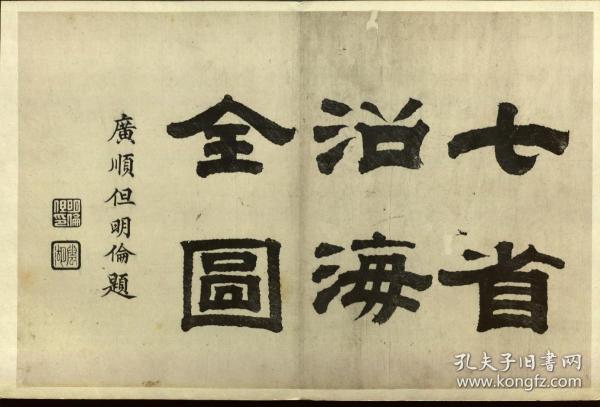 七省
沿海
全圖
廣順但明倫題
孔夫子旧书网
www.kongfz.com